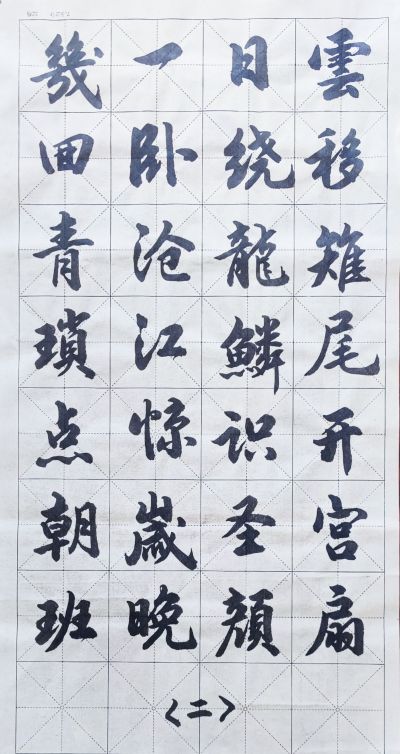 雲移雉尾开宫扇
日绕龍鳞识圣颜
一卧沧江惊歲晚
幾回青瑣点朝班
<二>